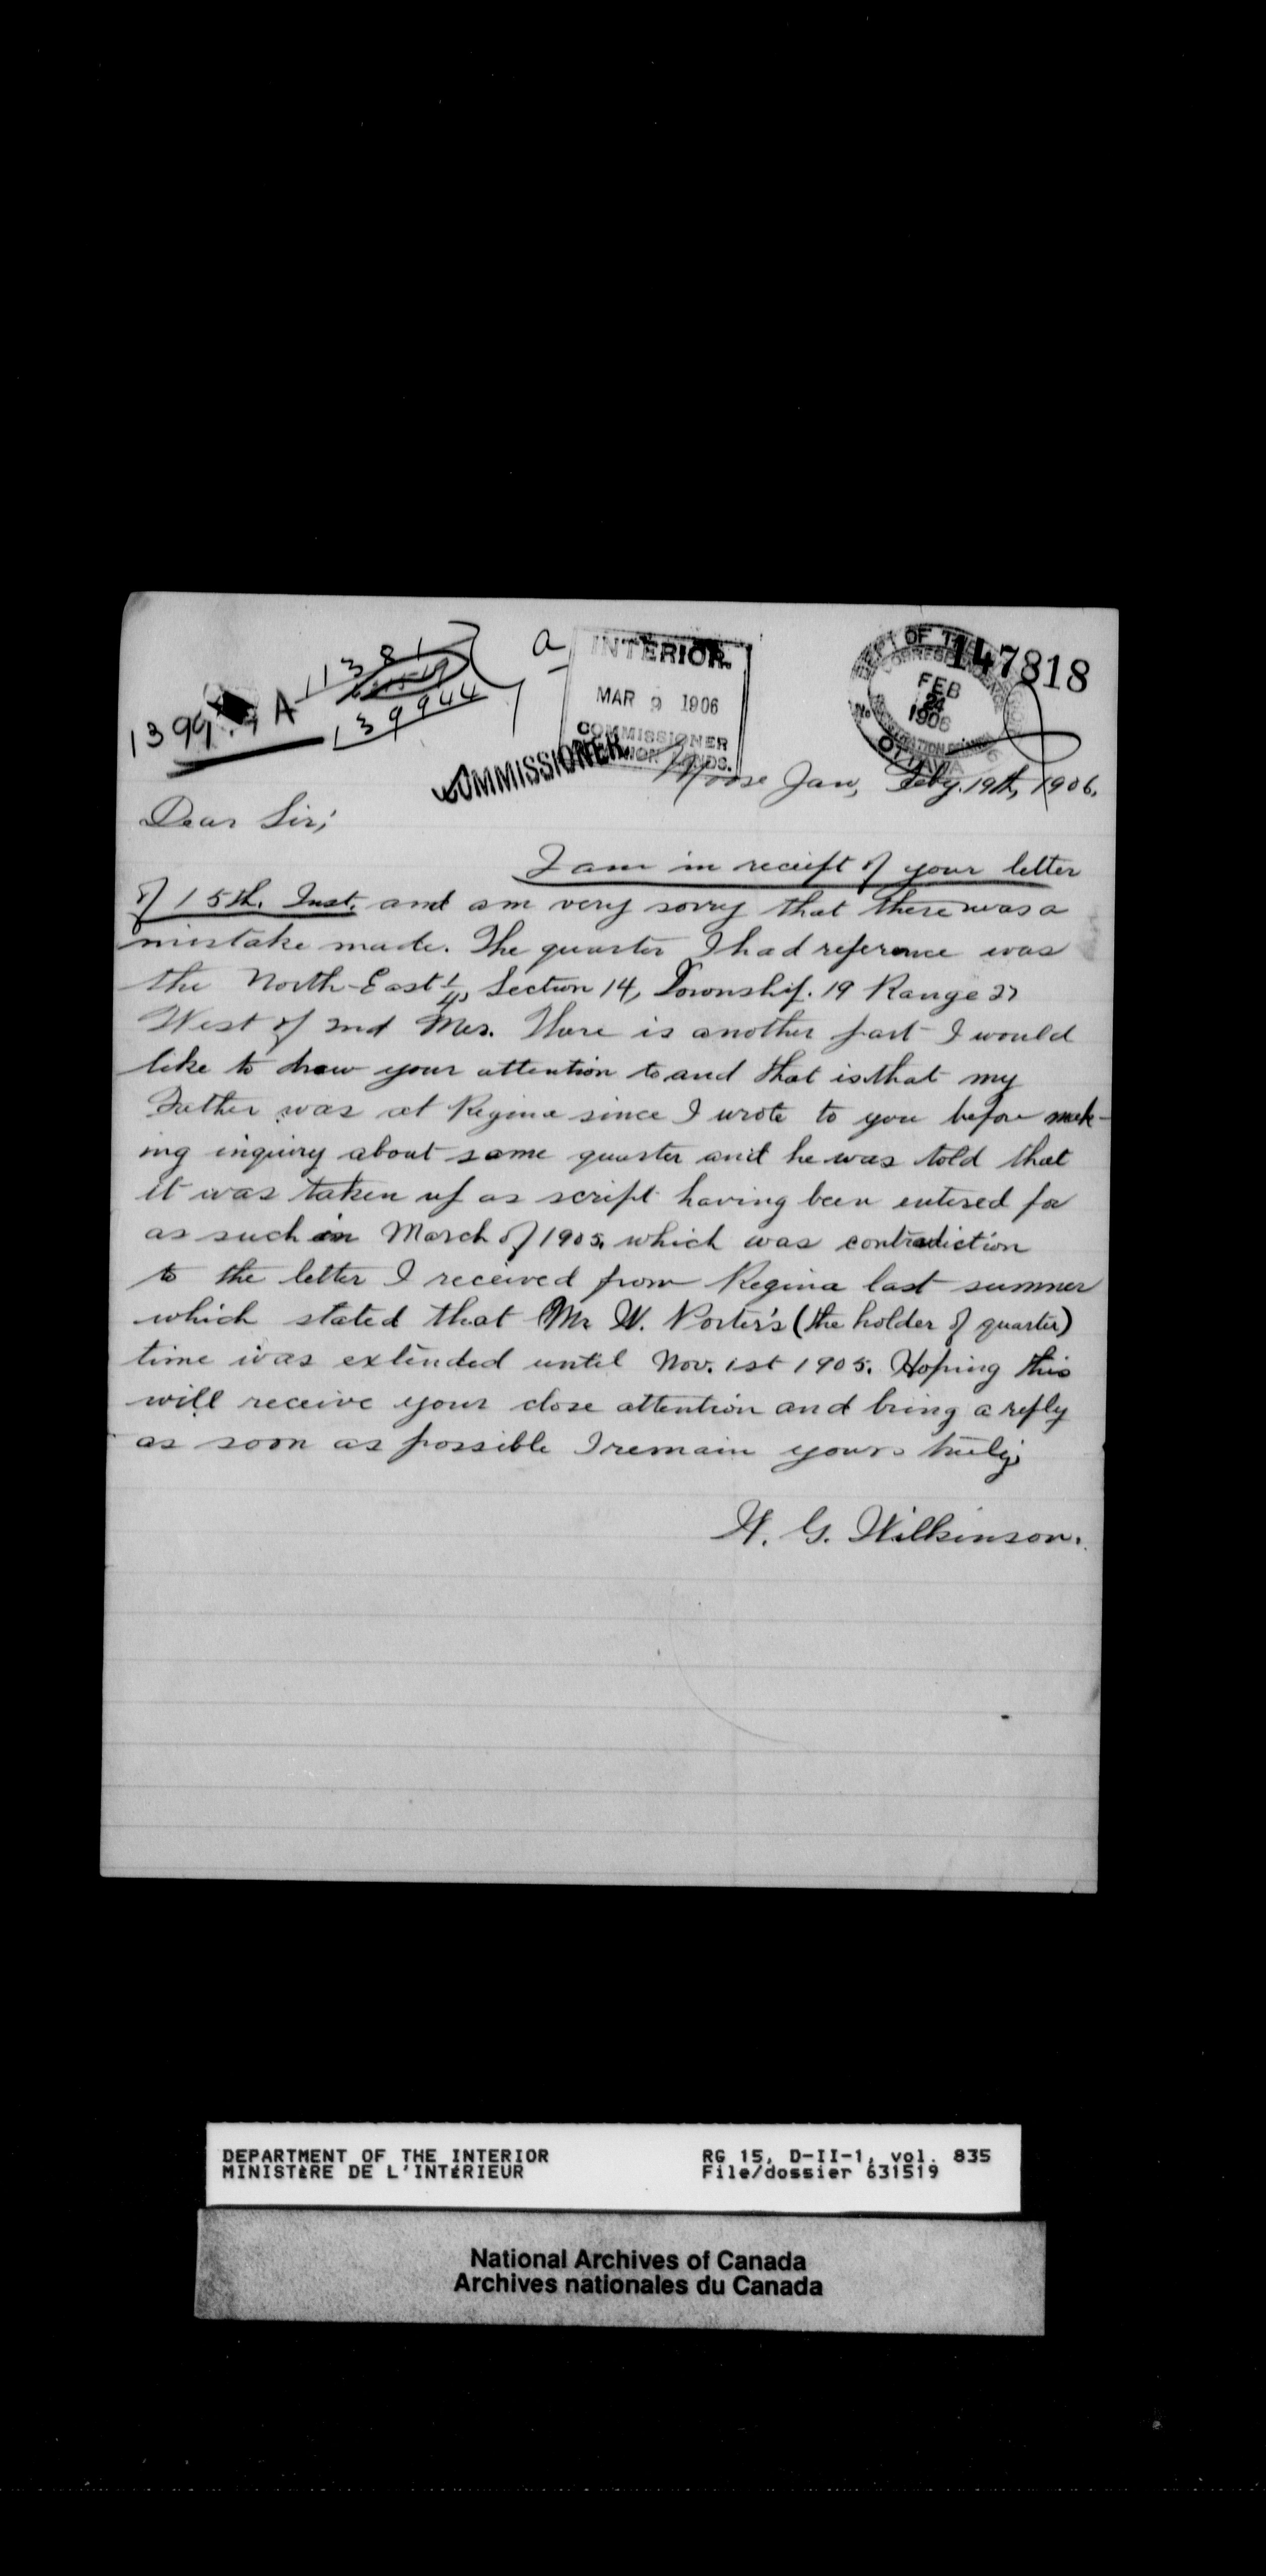 147818
DEPT OF THE
CORRESPONDENCE
FEB
24
1906
REGISTRATION BRANCH
OTTAWA
INTERIOR.
MAR 9 1906
COMMISSIONER
LANDS.
COMMISSIONER
a
11381
139944
A
Moose Jaw, Feby. 19th, 1906.
Dear Sir;
I am in reciept of your letter
of 15th. Inst. and am very sorry that there was a
mistake made. The quarter I had reference was
the North-East 1/4, Section 14, Township. 19 Range 27
West of 2nd Mer. There is another fact I would
like to draw your attention to and that is that my
Father was at Regina since I wrote to you before mak-
ing inquiry about same quarter and he was told that
it was taken up as script having been entered for
as such in March of 1905, which was contradiction
to the letter I received from Regina last summer
which stated that Mr W. Porter's (the holder of quarter)
time was extended until Nov. 1st 1905. Hoping this
will receive your close attention and bring a reply
as soon as possible I remain yours truly;
W. G. Wilkinson.
DEPARTMENT OF THE INTERIOR RG 15, D-II-1, vol. 835
MINISTèRE DE L'INTéRIEUR File/dossier 631519
National Archives of Canada
Archives nationales du Canada